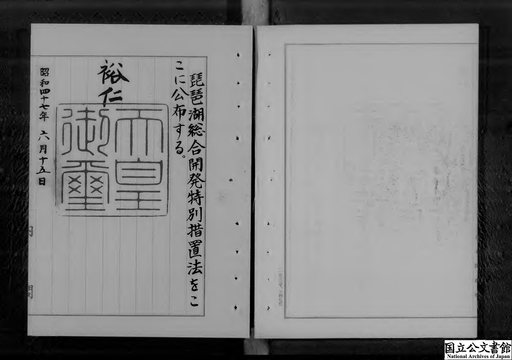 琵琶湖総合開発特別措置法をこ
こに公布する。
裕仁
天皇
御璽
昭和四十七年 六月十五日
国立公文書館
National Archives of Japan